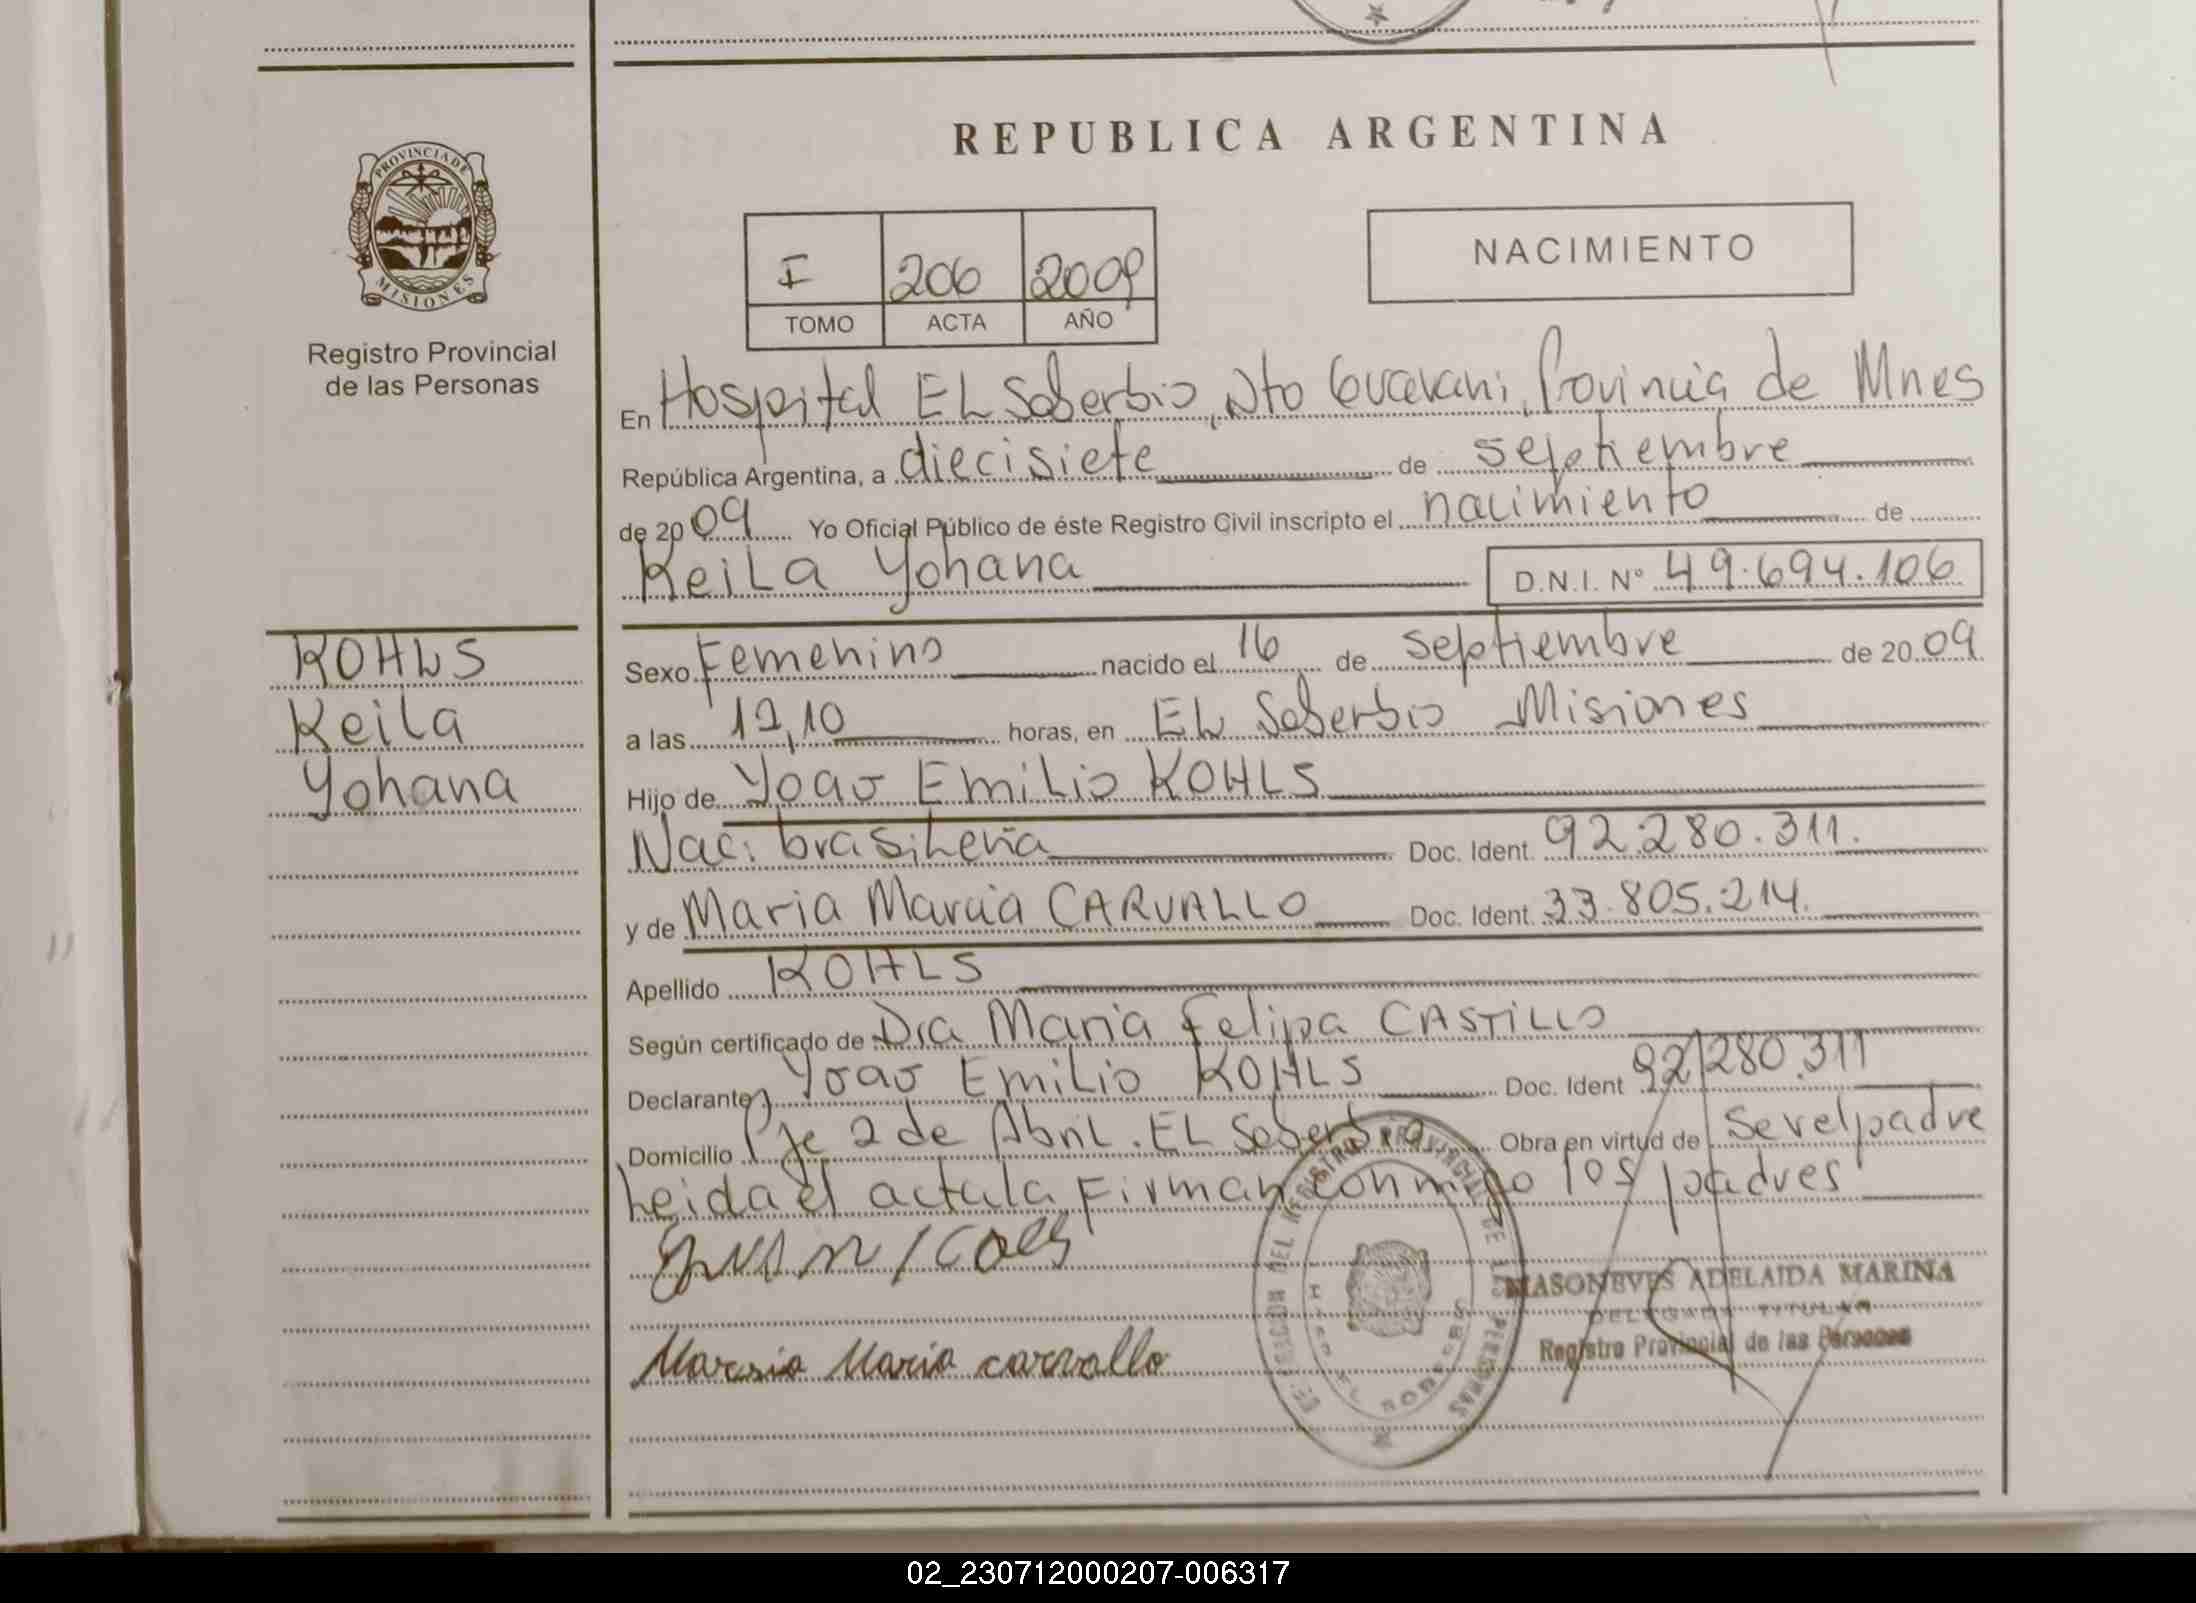 REPUBLICA ARGENTINA
PROVINCIA DE
MISIONES
Registro Provincial
de las Personas
I 206 2009
TOMO ACTA AÑO
NACIMIENTO
En Hospital EL Soberbio, Dto Guarani, Provincia de Mnes
República Argentina, a diecisiete de septiembre
de 2009 Yo Oficial Público de éste Registro Civil inscripto el nacimiento de
Keila Yohana D.N.I. Nº 49.694.106
KOHLS
Keila
Yohana
Sexo Femenino nacido el 16 de septiembre de 2009
a las 12,10 horas, en EL Soberbio Misiones
Hijo de Yoao Emilio KOHLS
Nac. brasileña Doc. Ident. 92.280.311.
y de Maria Marcia CARVALLO Doc. Ident. 33.805.214.
Apellido KOHLS
Según certificado de Dra Maria Felipa CASTILLO
Declarante Yoao Emilio KOHLS Doc. Ident 92.280.311
Domicilio Pje 2 de Abril. EL Soberbio Obra en virtud de ser el padre
Leida el acta la Firman conmigo los padres
Marcia Maria carvallo
DEL REGISTRO PROVINCIAL DE LAS PERSONAS
EL SOBERBIO
MASONEVES ADELAIDA MARINA
DELEGADA TITULAR
Registro Provincial de las Personas
02_230712000207-006317